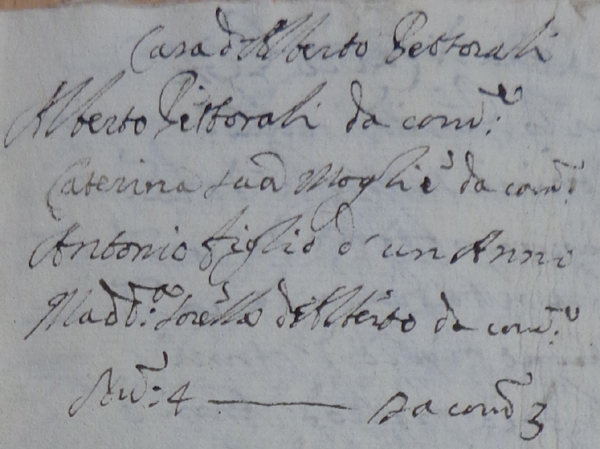 Casa d'Alberto Pettorali
Alberto Pettorali da com:e
Caterina sua Moglie da com:e
Antonio figlio d'un Anni
Madd:a sorella d'Alberto da com:e
Nu: 4 —— Da com 3